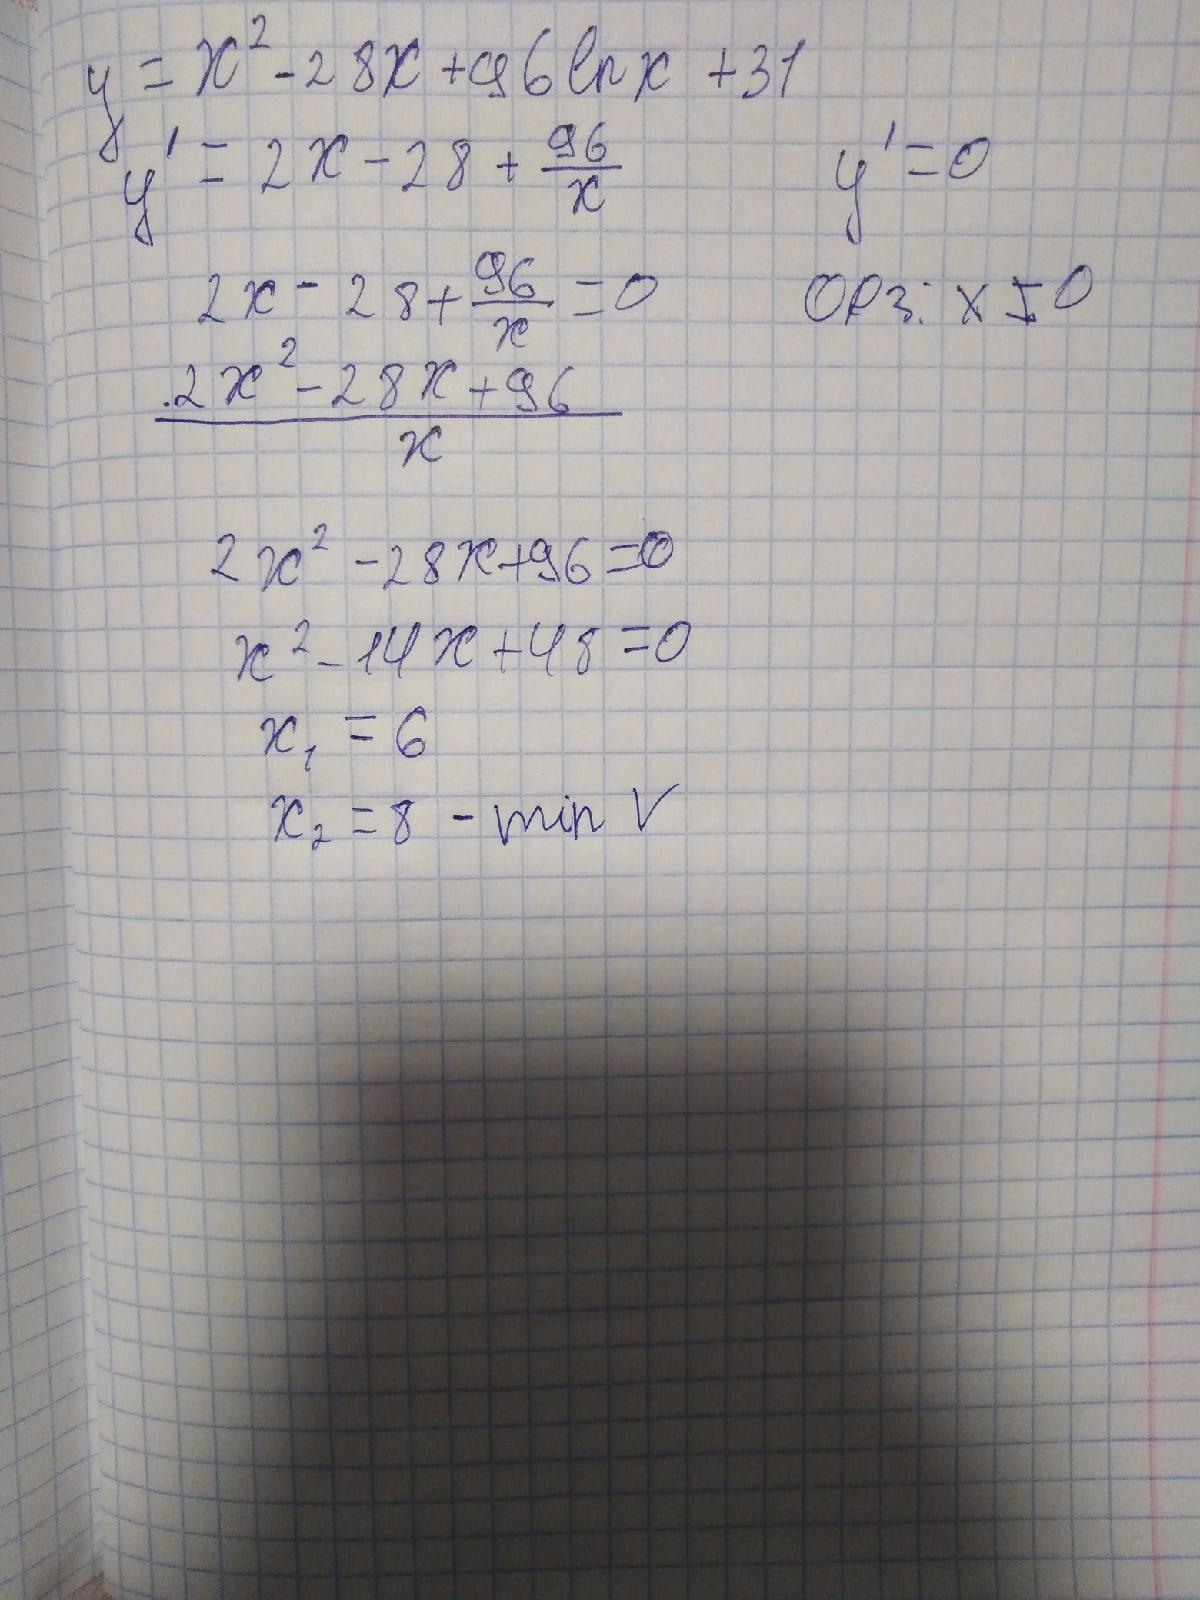 y = x² - 28x + 96 ln x + 31
y' = 2x - 28 + 96/x y' = 0
2x - 28 + 96/x = 0 ОРЗ: x
2x² - 28x + 96
x
2x² - 28x + 96 = 0
x² - 14x + 48 = 0
x₁ = 6
x₂ = 8 - min V